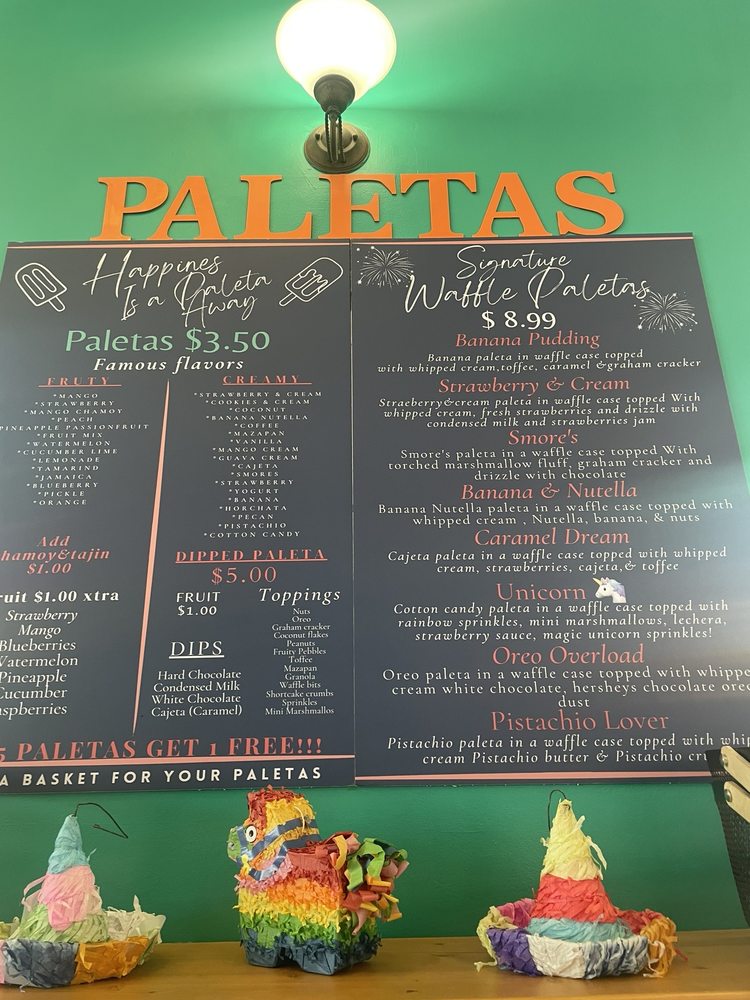 PALETAS
Happines
Is a Paleta
Away
Paletas $3.50
Famous flavors
FRUTY
*MANGO
*STRAWBERRY
*MANGO CHAMOY
*PEACH
PINEAPPLE PASSIONFRUIT
*FRUIT MIX
*WATERMELON
*CUCUMBER LIME
*LEMONADE
*TAMARIND
*JAMAICA
*BLUEBERRY
*PICKLE
*ORANGE
Add
hamoy&tajin
$1.00
ruit $1.00 xtra
Strawberry
Mango
Blueberries
Watermelon
Pineapple
Cucumber
aspberries
CREAMY
*STRAWBERRY & CREAM
*COOKIES & CREAM
*COCONUT
*BANANA NUTELLA
*COFFEE
*MAZAPAN
*VANILLA
*MANGO CREAM
*GUAVA CREAM
*CAJETA
*SMORES
*STRAWBERRY
*YOGURT
*BANANA
*HORCHATA
*PECAN
*PISTACHIO
*COTTON CANDY
DIPPED PALETA
$5.00
FRUIT
$1.00
DIPS
Hard Chocolate
Condensed Milk
White Chocolate
Cajeta (Caramel)
Toppings
Nuts
Oreo
Graham cracker
Coconut flakes
Peanuts
Fruity Pebbles
Toffee
Mazapan
Granola
Waffle bits
Shortcake crumbs
Sprinkles
Mini Marshmallos
5 PALETAS GET 1 FREE!!!
A BASKET FOR YOUR PALETAS
Signature
Waffle Paletas
$ 8.99
Banana Pudding
Banana paleta in waffle case topped
with whipped cream,toffee, caramel &graham cracker
Strawberry & Cream
Straeberry&cream paleta in waffle case topped With
whipped cream, fresh strawberries and drizzle with
condensed milk and strawberries jam
Smore's
Smore's paleta in a waffle case topped With
torched marshmallow fluff, graham cracker and
drizzle with chocolate
Banana & Nutella
Banana Nutella paleta in a waffle case topped with
whipped cream , Nutella, banana, & nuts
Caramel Dream
Cajeta paleta in a waffle case topped with whipped
cream, strawberries, cajeta,& toffee
Unicorn 🦄
Cotton candy paleta in a waffle case topped with
rainbow sprinkles, mini marshmallows, lechera,
strawberry sauce, magic unicorn sprinkles!
Oreo Overload
Oreo paleta in a waffle case topped with whippe
cream white chocolate, hersheys chocolate ore
dust
Pistachio Lover
Pistachio paleta in a waffle case topped with whip
cream Pistachio butter & Pistachio cru